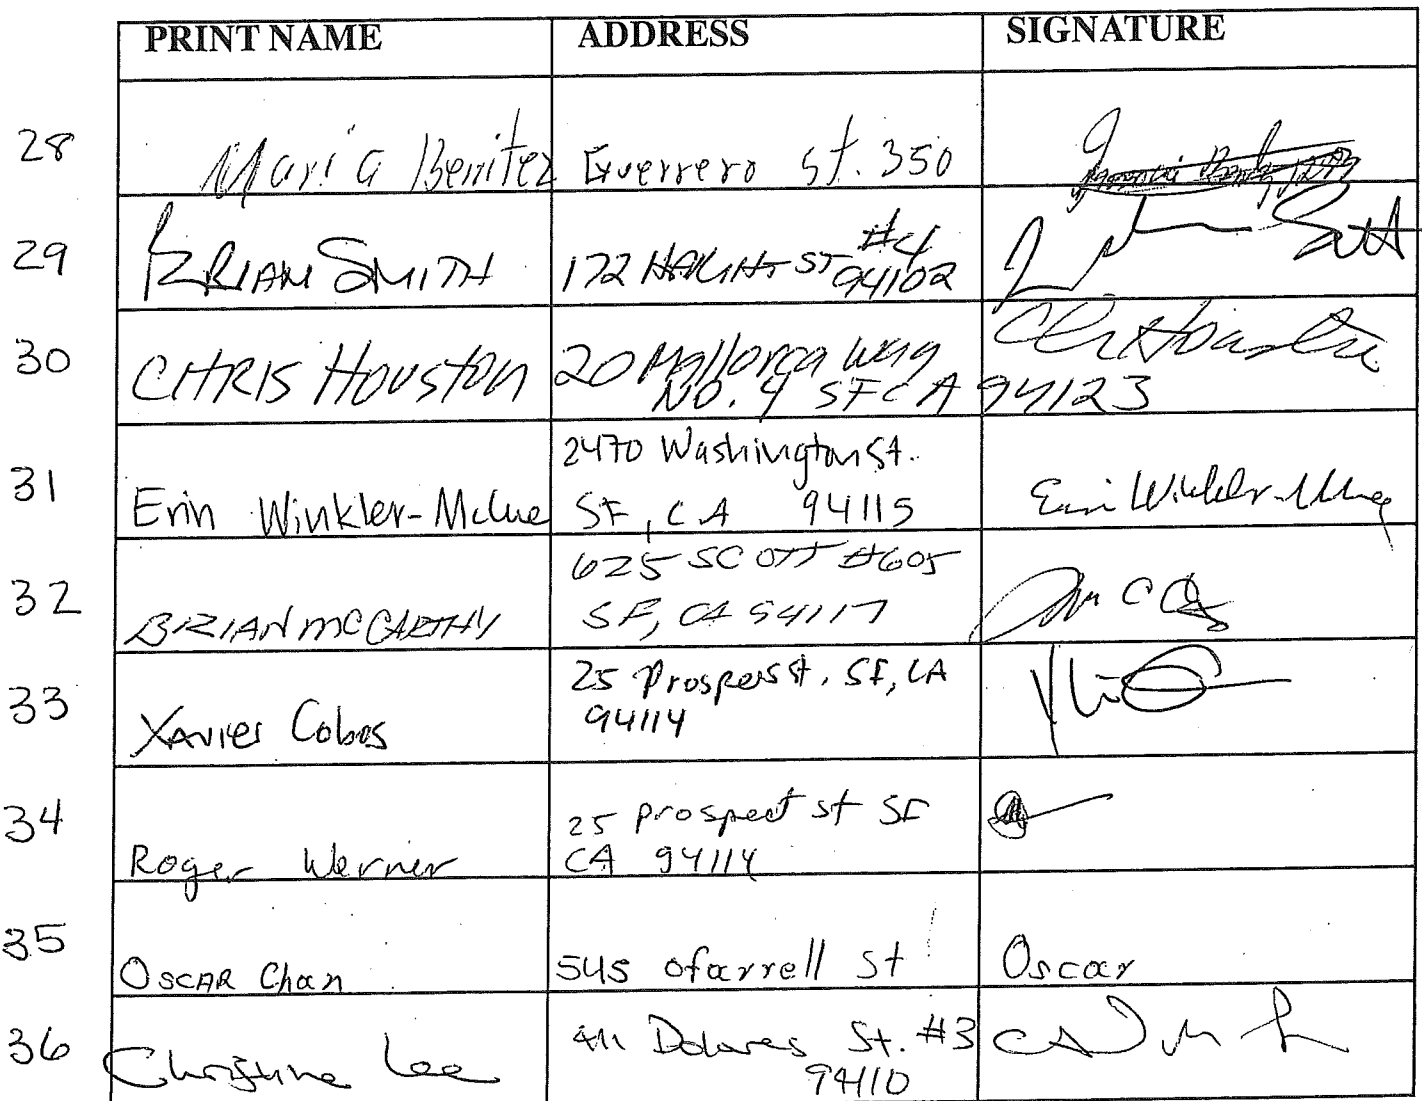 PRINT NAME ADDRESS SIGNATURE
28 Maria Benitez Guerrero St. 350
29 BRIAN SMITH 172 HAIGHT ST #4
94102
30 CHRIS HOUSTON 20 Mallorca Way Chris Houston
NO. 4 SF CA 94123
31 Erin Winkler-McCue 2470 Washington St. Erin Winkler-McCue
SF, CA 94115
32 BRIAN MCCARTHY 625 SCOTT #605
SF, CA 94117
33 XAVIER Cobos 25 Prosper St. SF, CA
94114
34 Roger Werner 25 prospect st SF
CA 94114
35 OSCAR Chan 545 ofarrell St Oscar
36 Christine Lee 411 Dolores St. #3
94110